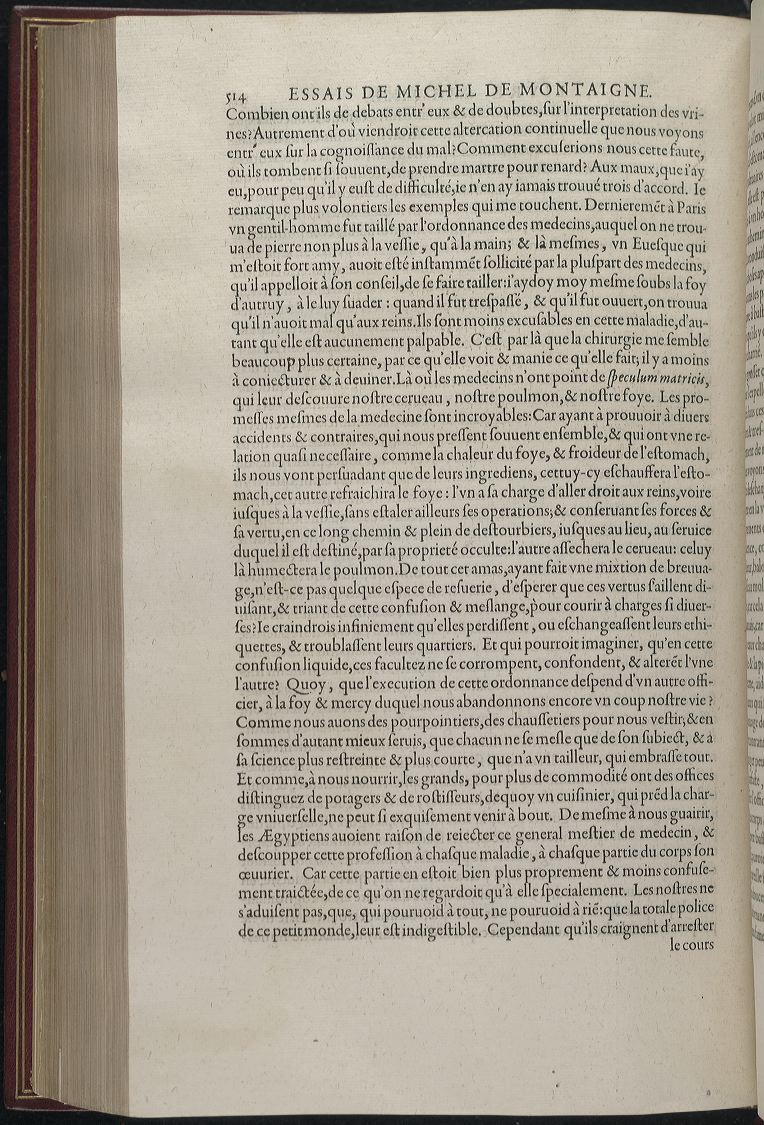 514 ESSAIS DE MICHEL DE MONTAIGNE.
Combien ont ils de debats entr' eux & de doubtes,ſur l'interpretation des vri-
nes?Autrement d'où viendroit cette altercation continuelle que nous voyons
entr' eux ſur la cognoiſſance du mal?Comment excuſerions nous cette faute,
où ils tombent ſi ſouuent,de prendre martre pour renard? Aux maux,que i'ay
eu,pour peu qu'il y euſt de difficulté,ie n'en ay iamais trouué trois d'accord. Ie
remarque plus volontiers les exemples qui me touchent. Dernieremẽt à Paris
vn gentil-homme fut taillé par l'ordonnance des medecins,auquel on ne trou-
ua de pierre non plus à la veſſie, qu'à la main; & là meſmes, vn Eueſque qui
m'eſtoit fort amy, auoit eſté inſtammẽt ſollicité par la pluſpart des medecins,
qu'il appelloit à ſon conſeil,de ſe faire tailler:i'aydoy moy meſme ſoubs la foy
d'autruy, à le luy ſuader : quand il fut treſpaſſé, & qu'il fut ouuert,on trouua
qu'il n'auoit mal qu'aux reins.Ils ſont moins excuſables en cette maladie,d'au-
tant qu'elle eſt aucunement palpable. C'eſt par là que la chirurgie me ſemble
beaucoup plus certaine, par ce qu'elle voit & manie ce qu'elle fait; il y a moins
à coniecturer & à deuiner.Là où les medecins n'ont point de ſpeculum matricis,
qui leur deſcouure noſtre cerueau, noſtre poulmon,& noſtre foye. Les pro-
meſſes meſmes de la medecine ſont incroyables:Car ayant à prouuoir à diuers
accidents & contraires,qui nous preſſent ſouuent enſemble,& qui ont vne re-
lation quaſi neceſſaire, comme la chaleur du foye, & froideur de l'eſtomach,
ils nous vont perſuadant que de leurs ingrediens, cettuy-cy eſchauffera l'eſto-
mach,cet autre refraichira le foye : l'vn a ſa charge d'aller droit aux reins,voire
iuſques à la veſſie,ſans eſtaler ailleurs ſes operations;& conſeruant ſes forces &
ſa vertu,en ce long chemin & plein de deſtourbiers, iuſques au lieu, au ſeruice
duquel il eſt deſtiné,par ſa proprieté occulte:l'autre aſſechera le cerueau: celuy
là humectera le poulmon.De tout cet amas,ayant fait vne mixtion de breuua-
ge,n'eſt-ce pas quelque eſpece de reſuerie, d'eſperer que ces vertus ſ'aillent di-
uiſant,& triant de cette confuſion & meſlange,pour courir à charges ſi diuer-
ſes?Ie craindrois infiniement qu'elles perdiſſent, ou eſchangeaſſent leurs ethi-
quettes, & troublaſſent leurs quartiers. Et qui pourroit imaginer, qu'en cette
confuſion liquide,ces facultez ne ſe corrompent, confondent, & alterẽt l'vne
l'autre? Quoy, que l'execution de cette ordonnance deſpend d'vn autre offi-
cier, à la foy & mercy duquel nous abandonnons encore vn coup noſtre vie ?
Comme nous auons des pourpointiers,des chauſſetiers pour nous veſtir;& en
ſommes d'autant mieux ſeruis, que chacun ne ſe meſle que de ſon ſubiect, & a
ſa ſcience plus reſtreinte & plus courte, que n'a vn tailleur, qui embraſſe tout.
Et comme,à nous nourrir,les grands, pour plus de commodité ont des offices
diſtinguez de potagers & de roſtiſſeurs,dequoy vn cuiſinier, qui prẽd la char-
ge vniuerſelle,ne peut ſi exquiſement venir à bout. De meſme à nous guairir,
les Ægyptiens auoient raiſon de reiecter ce general meſtier de medecin, &
deſcoupper cette profeſſion à chaſque maladie, à chaſque partie du corps ſon
œuurier. Car cette partie en eſtoit bien plus proprement & moins confuſe-
ment traictée,de ce qu'on ne regardoit qu'à elle ſpecialement. Les noſtres ne
s'aduiſent pas,que, qui pouruoid à tout, ne pouruoid à riẽ:que la totale police
de ce petit monde,leur eſt indigeſtible. Cependant qu'ils craignent d'arreſter
le cours